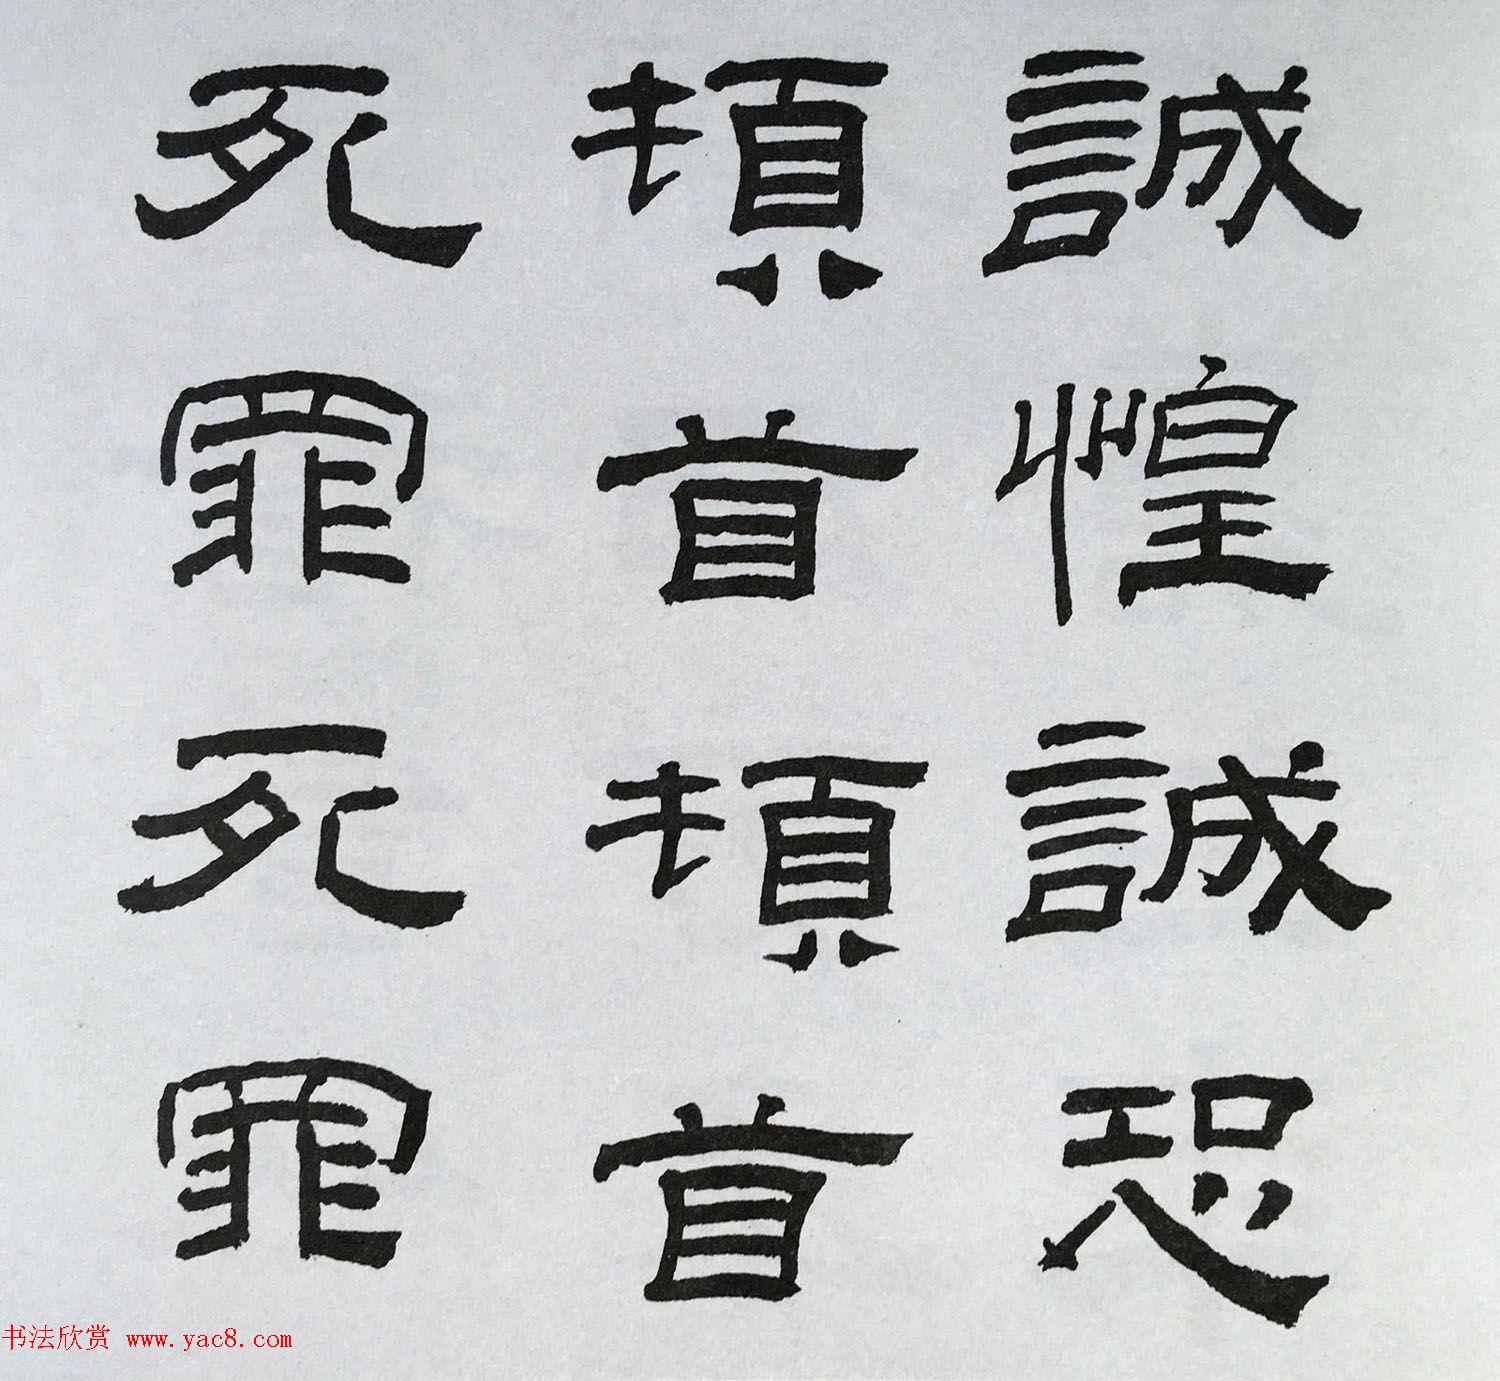 誠惶誠恐
頓首頓首
死罪死罪
书法欣赏 www.yac8.com